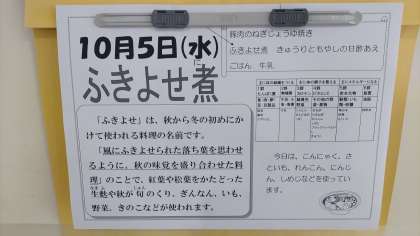 10月5日(水)
ふきよせ煮
豚肉のねぎじょうゆ焼き
ふきよせ煮 きゅうりともやしの甘酢あえ
ごはん 牛乳
「ふきよせ」は、秋から冬の初めにか
けて使われる料理の名前です。
「風にふきよせられた落ち葉を思わせ
るように、秋の味覚を盛り合わせた料
理」のことで、紅葉や松葉をかたどった
生麩や秋が旬のくり、ぎんなん、いも、
野菜、きのこなどが使われます。
今日は、こんにゃく、さ
といも、れんこん、にんじ
ん、しめじなどを使ってい
ます。